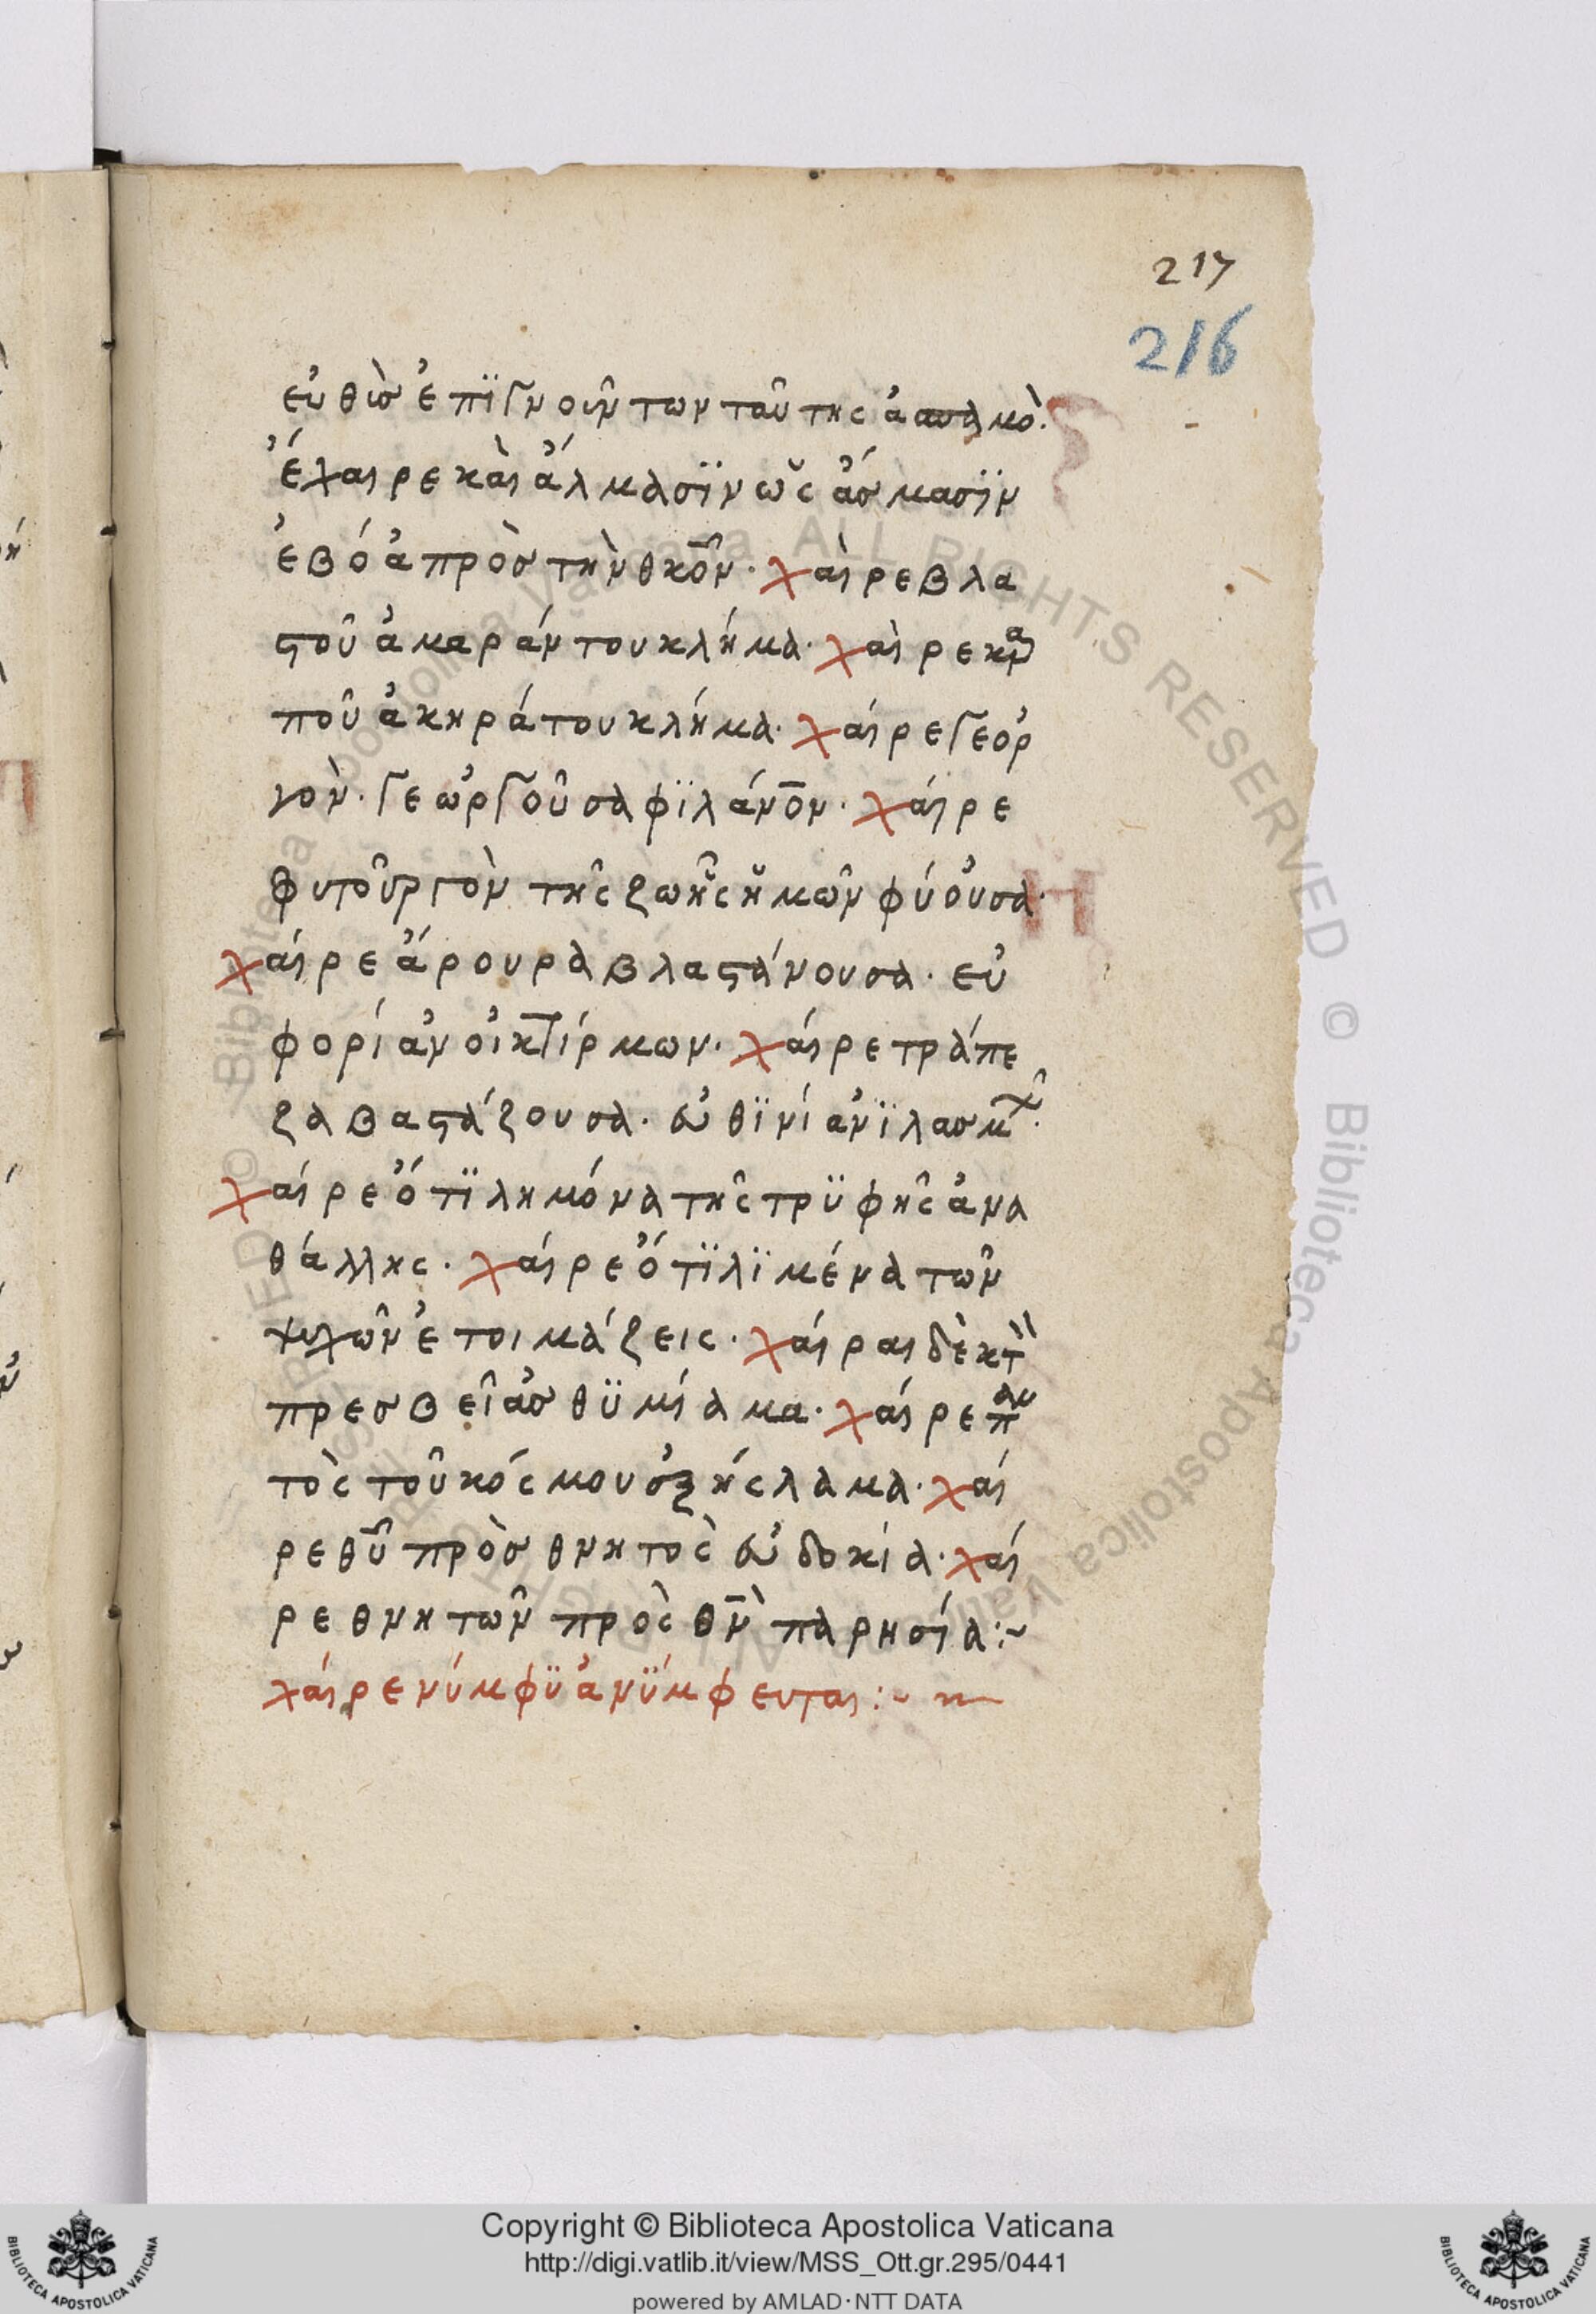 217
216
εὐθῒσ ἐπϊγνοῦν των ταῦτης ἀσπαμὸ.
ἔχαιρε κὰι ἄλμασϊν ὡς ἄσμασϊν
ἐβόα πρὸσ τὴν θκο̅ν. χὰιρε βλα
ϛοῦ ἀμαράντου κλήμα. χὰιρε καρ
ποῦ ἀκηράτου κλήμα. χάιρε γεορ
γον. γεωργοῦσα φϊλάνο̅ν. χάιρε
φυτοῦργὸν τῆς ζωῆς ἡμῶν φύουσα.
χάιρε ἄρουρα βλαϛάνουσα. εὐ
φορίαν οἰκτίρμων. χάιρε τράπε
ζα βαϛάζουσα. εὐθϊνίαν ϊλασμ
χάιρε ὅτϊ λημόνα τῆς τρϋφῆς ἀνα
θάλλης. χάιρε ὅτϊ λϊμένα τῶν
ψυχῶν ἑτοιμάζεις. χάιραι δὲκτ
πρεσβεῖασ θϋμίαμα. χάιρε παν
τὸς τοῦ κόσμου ἐξήςλαμα. χάι
ρε θῦ πρὸσ θνητοὺς εὐδοκία. χάι
ρε θνητῶν πρὸς θν̅ παρησία:~
χάιρε νύμφϋ ἀνϋμφευται:~
Copyright © Biblioteca Apostolica Vaticana
http://digi.vatlib.it/view/MSS_Ott.gr.295/0441
powered by AMLAD·NTT DATA